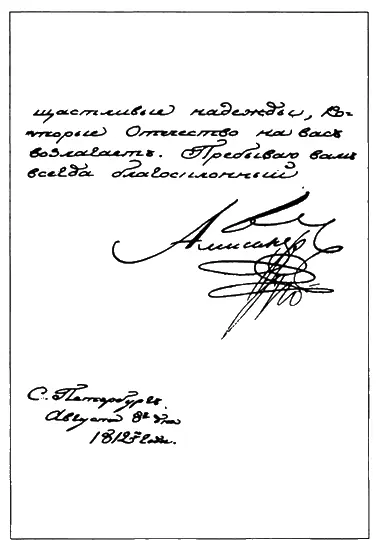 щастливые надежды, ко-
торые Отечество на васъ
возлагаетъ. Пребываю вамъ
всегда благосклонный
Александръ
С. Петербургъ.
Августа 8го дня
1812го года.